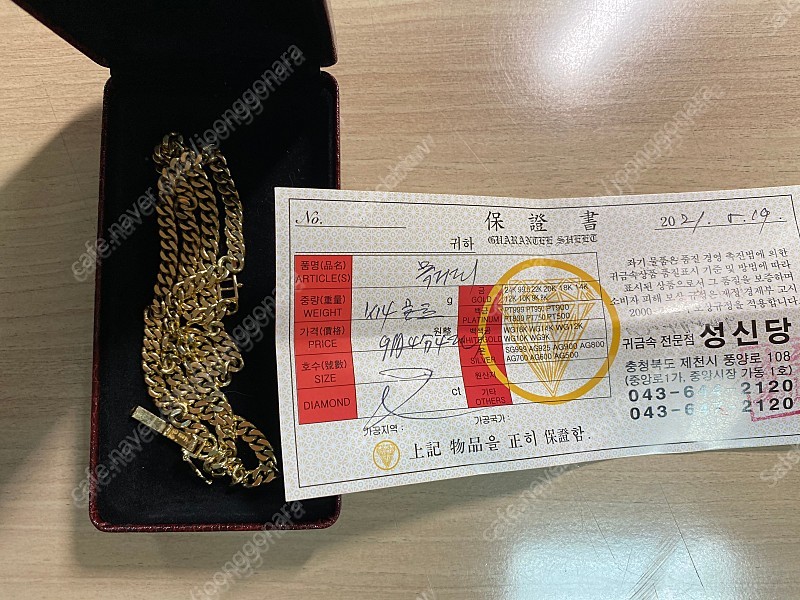 No.
保 證 書
2021. 8. 19.
귀하 GUARANTEE SHEET
품명(品名)
ARTICLE(S)
목걸이
중량(重量)
WEIGHT
g
가격(價格)
PRICE
원整
호수(號數)
SIZE
DIAMOND
ct
금
GOLD
24K 995 22K 20K 18K 14K
12K 10K 9K 8K
백금
PLATINUM
PT999 PT950 PT900
PT850 PT750 PT500
백색금
WHITEGOLD
WG18K WG14K WG12K
WG10K WG9K
은
SILVER
SG999 AG925 AG900 AG800
AG700 AG600 AG500
원산지
기타
OTHERS
가공지역 :
가공국가 :
上記 物品을 正히 保證함.
좌기 물품은 품질 경영 촉진법에 의한
귀금속상품 품질표시 기준 및 방법에 따라
표시된 상품으로서 그 품질을 보증하며
소비자 피해 보상 규정은 재정경제부 고시
2000 보상규정을 적용합니다.
귀금속 전문점 성신당
충청북도 제천시 풍양로 108
(중앙로1가, 중앙시장 가동 1호)
043-64 2120
043-64 2120
cafe.naver.com/joonggonara